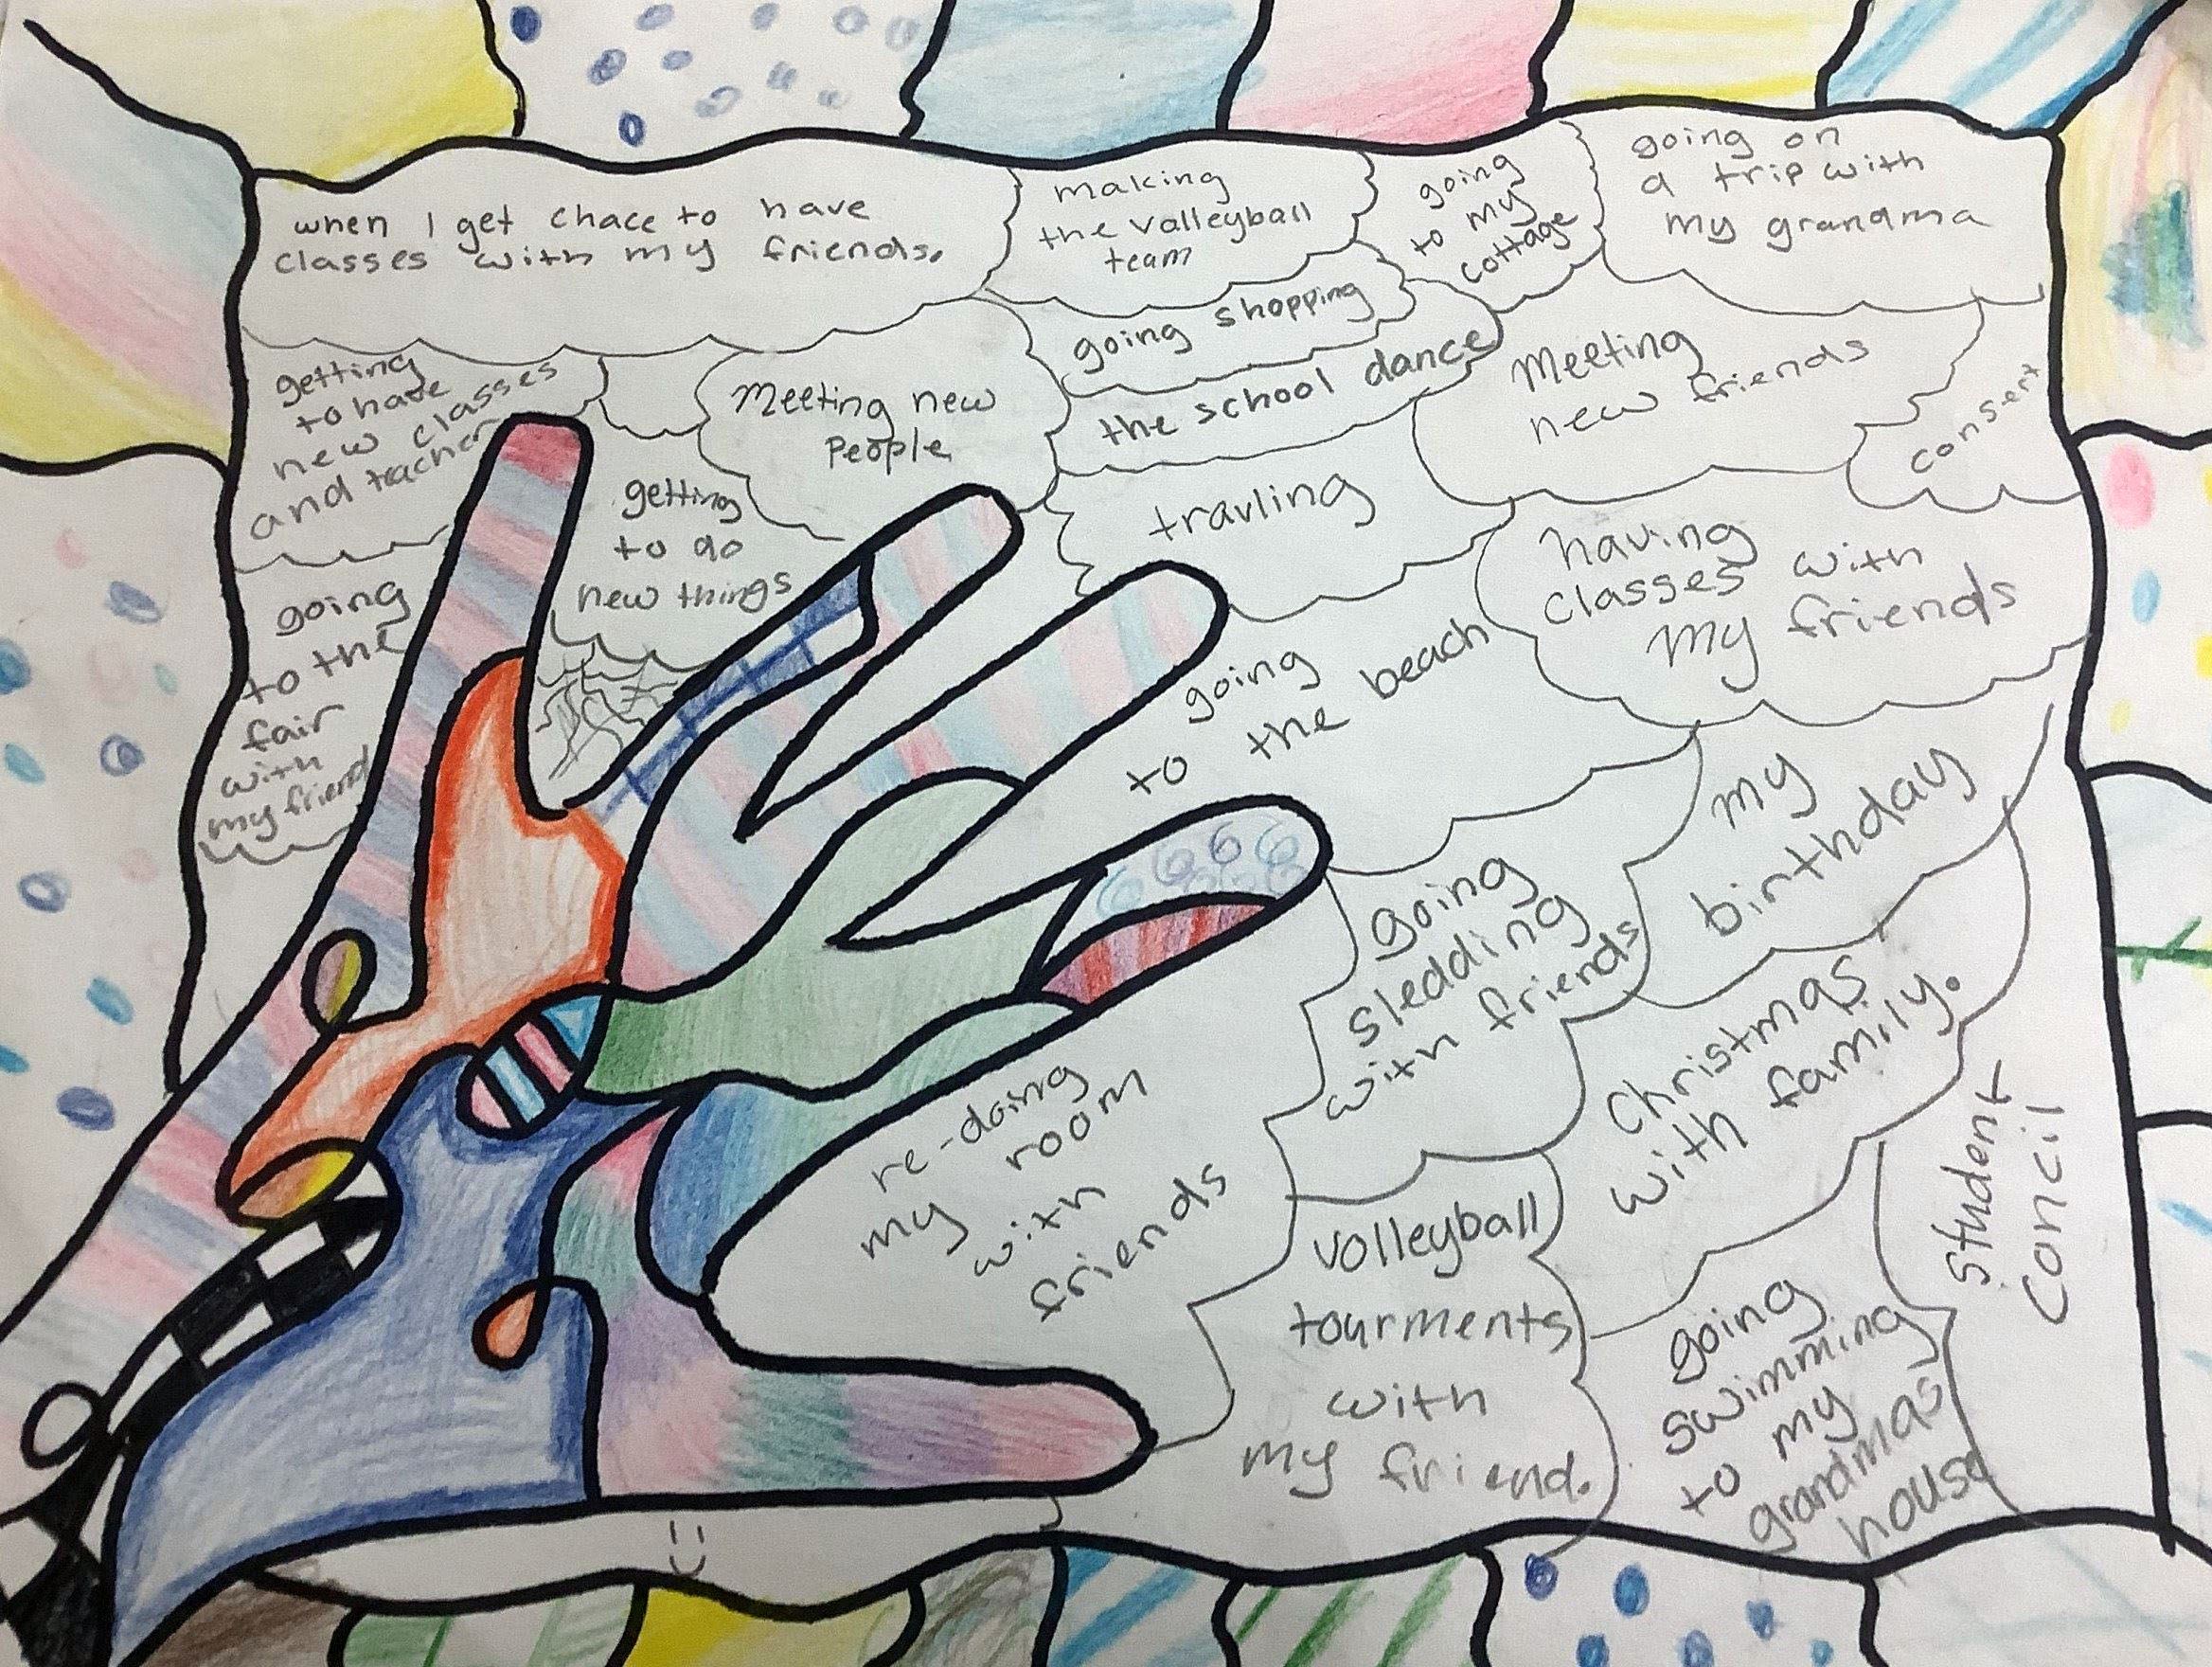 when I get chace to have
classes with my friends.
making
the valleyball
team
going
to my
cottage
going on
a trip with
my grandma
going shopping
the school dance
getting
to hate
new classes
and teacher
Meeting new
People
Meeting
new friends
consert
getting
to do
new things
travling
having
classes with
my friends
going
to the
fair
with
my friend
going
to the beach
my
birthday
going
sledding
with friends
Christmas
with family.
re-doing
my room
with
friends
student
concil
volleyball
tourments
with
my friend.
going
swimming
to my
grandmas
house